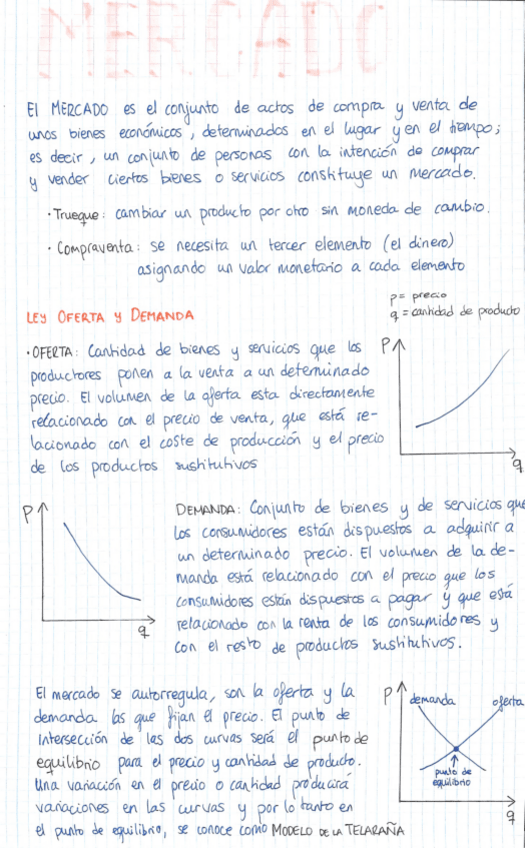 MERCADO
El MERCADO es el conjunto de actos de compra y venta de
unos bienes económicos, determinados en el lugar y en el tiempo;
es decir, un conjunto de personas con la intención de comprar
y vender ciertos bienes o servicios constituye un mercado.
· Trueque: cambiar un producto por otro sin moneda de cambio.
· Compraventa: se necesita un tercer elemento (el dinero)
asignando un valor monetario a cada elemento
LEY OFERTA Y DEMANDA
p = precio
q = cantidad de producto
· OFERTA: Cantidad de bienes y servicios que los
productores ponen a la venta a un determinado
precio. El volumen de la oferta esta directamente
relacionado con el precio de venta, que está re-
lacionado con el coste de producción y el precio
de los productos sustitutivos
P
q
P
q
DEMANDA: Conjunto de bienes y de servicios que
los consumidores están dispuestos a adquirir a
un determinado precio. El volumen de la de-
manda está relacionado con el precio que los
consumidores están dispuestos a pagar y que está
relacionado con la renta de los consumidores y
con el resto de productos sustitutivos.
El mercado se autorregula, son la oferta y la
demanda las que fijan el precio. El punto de
intersección de las dos curvas será el punto de
equilibrio para el precio y cantidad de producto.
Una variación en el precio o cantidad producirá
variaciones en las curvas y por lo tanto en
el punto de equilibrio, se conoce como MODELO DE LA TELARAÑA
P
demanda
oferta
punto de
equilibrio
q